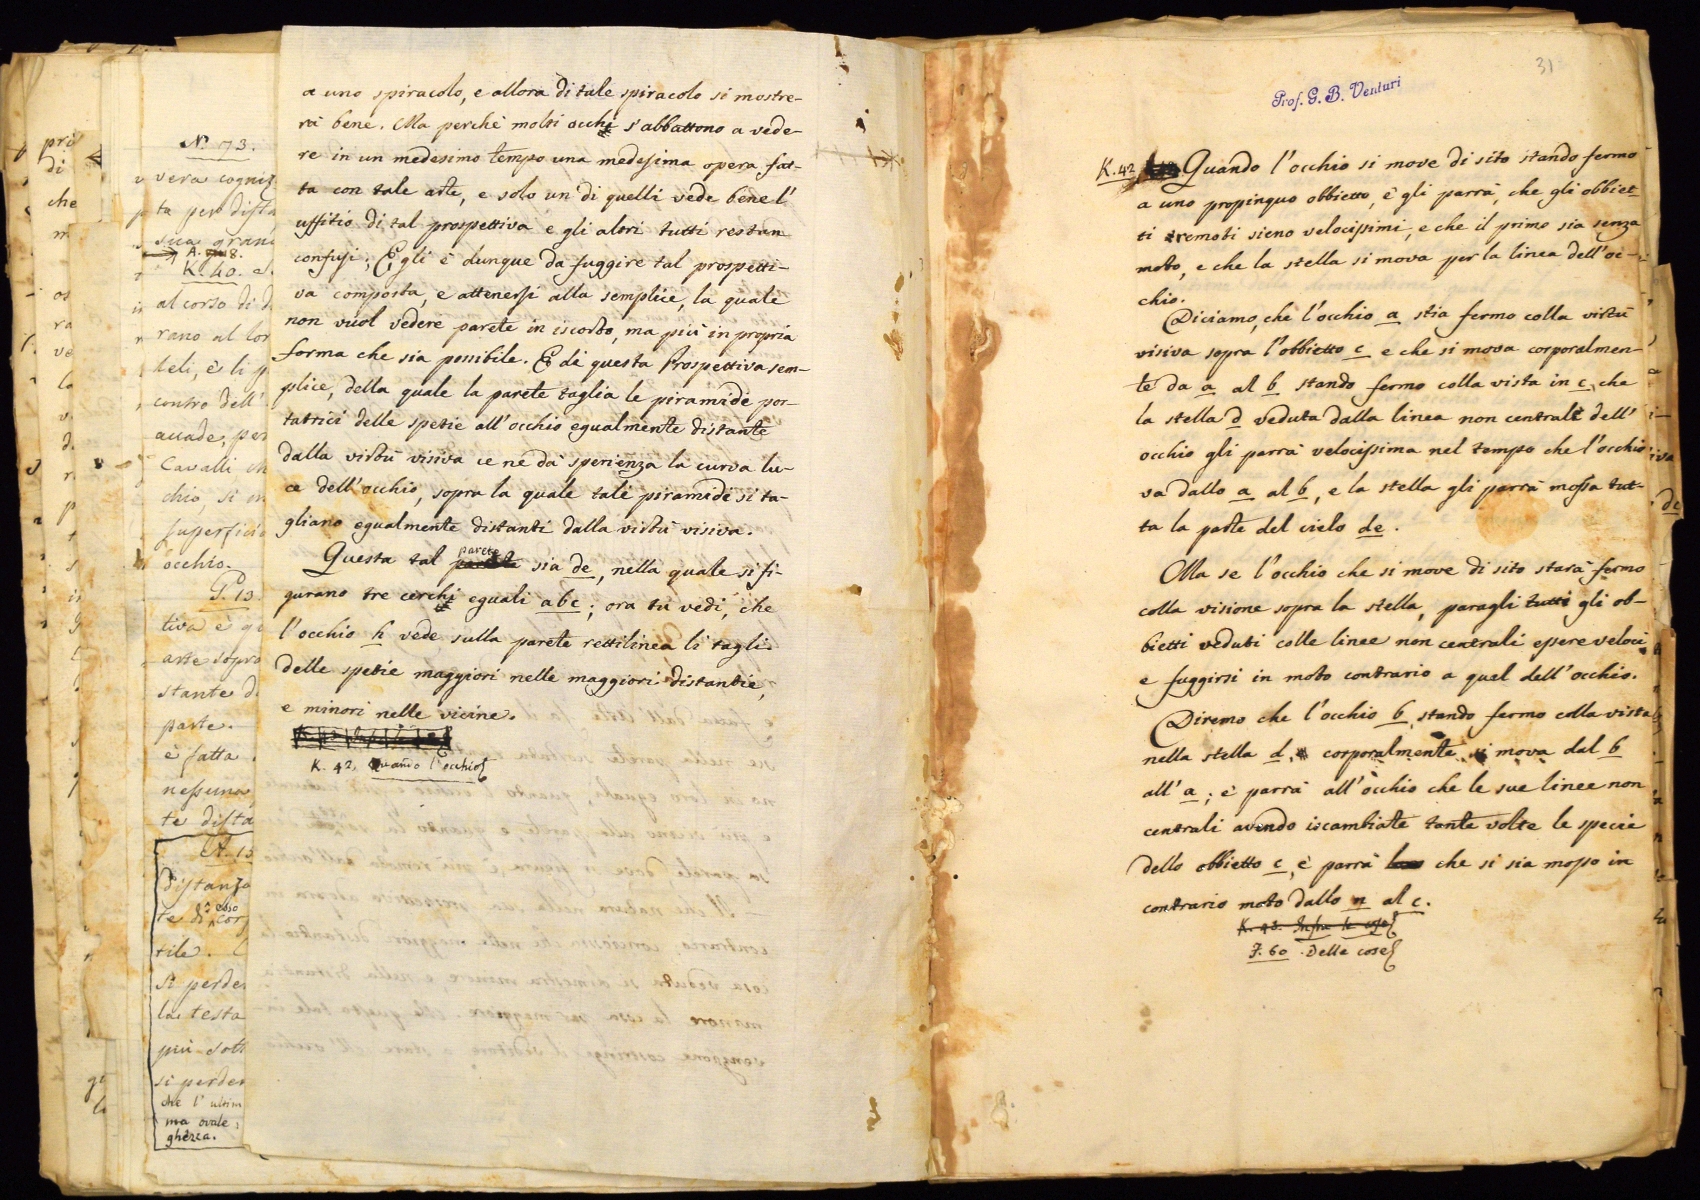 a uno spiracolo, e allora di tale spiracolo si mostre-
rà bene. Ma perchè molti occhi s'abbattono a vede-
re in un medesimo tempo una medesima opera fat-
ta con tale arte, e solo un di quelli vede bene l'
uffitio di tal prospettiva e gli altri tutti restan
confusi; Egli è dunque da fuggire tal prospetti-
va composta, e attenersi alla semplice, la quale
non vuol vedere parete in iscorto, ma più in propria
forma che sia possibile. E di questa Prospettiva sem-
plice, della quale la parete taglia le piramide por-
tatrici delle spetie all'occhio egualmente distante
dalla virtù visiva ce ne dà sperienza la curva lu-
ce dell'occhio, sopra la quale tali piramide si ta-
gliano egualmente distanti dalla virtù visiva.
Questa tal parete sia de, nella quale si fi-
gurano tre cerchi eguali abc; ora tu vedi, che
l'occhio h vede sulla parete rettilinea li tagli
delle spetie maggiori nelle maggiori distantie,
e minori nelle vicine.
K. 42. Quando l'occhio
N. 73.
vera cogniz
ta per dista
sua grand
A. 8.
K. 40.
al corso di d
rano al lor
leli, è li p
contro dell'
accade, per
Cavalli ch
chio, si m
superfici
occhio.
G. 13
tiva è
arte sopra
stante d
parte.
è fatta
nessuna
te dista
A. 13
Distanza
te di esso cor
tile.
Si perde
la testa
più sott
si perder
che l'ultim
ma ovale,
ghezza.
pri
di
che
31
Prof. G. B. Venturi
K. 42. Quando l'occhio si move di sito stando fermo
a uno propinquo obbietto, e' gli parrà, che gli obbiet-
ti remoti sieno velocissimi, e che il primo sia senza
moto, e che la stella si mova per la linea dell'oc-
chio.
Diciamo, che l'occhio a stia fermo colla virtù
visiva sopra l'obbietto c e che si mova corporalmen-
te da a al b stando fermo colla vista in c, che
la stella d veduta dalla linea non centrale dell'
occhio gli parrà velocissima nel tempo che l'occhio
va dallo a al b, e la stella gli parrà mossa tut-
ta la parte del cielo de.
Ma se l'occhio che si move di sito starà fermo
colla visione sopra la stella, paragli tutti gli ob-
bietti veduti colle linee non centrali essere veloci
e fuggirsi in moto contrario a quel dell'occhio.
Diremo che l'occhio b, stando fermo colla vista
nella stella d, corporalmente si mova dal b
all'a; e' parrà all'occhio che le sue linee non
centrali avendo iscambiate tante volte le specie
dello obbietto c, e' parrà che si sia mosso in
contrario moto dallo n al c.
K. 43. Infra le cose
F. 60. Delle cose